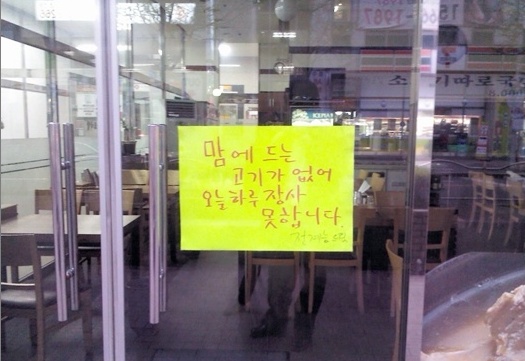 1566-1987
소고기따로국
맘에 드는
고기가 없어
오늘하루 장사
못합니다.